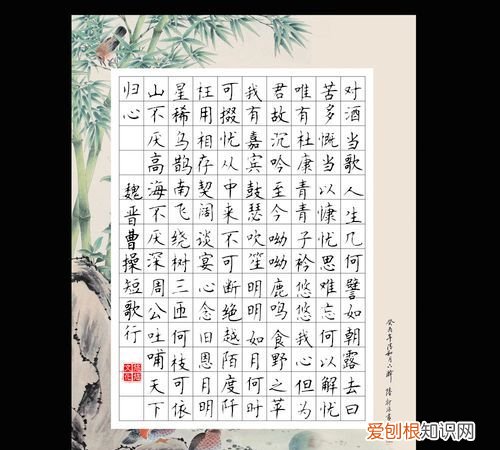 对酒当歌人生几何譬如朝露去日
苦多慨当以慷忧思难忘何以解忧
唯有杜康青青子衿悠悠我心但为
君故沉吟至今呦呦鹿鸣食野之苹
我有嘉宾鼓瑟吹笙明明如月何时
可掇忧从中来不可断绝越陌度阡
枉用相存契阔谈宴心念旧恩月明
星稀乌鹊南飞绕树三匝何枝可依
山不厌高海不厌深周公吐哺天下
归心
魏晋曹操短歌行
文化
爱刨根知识网